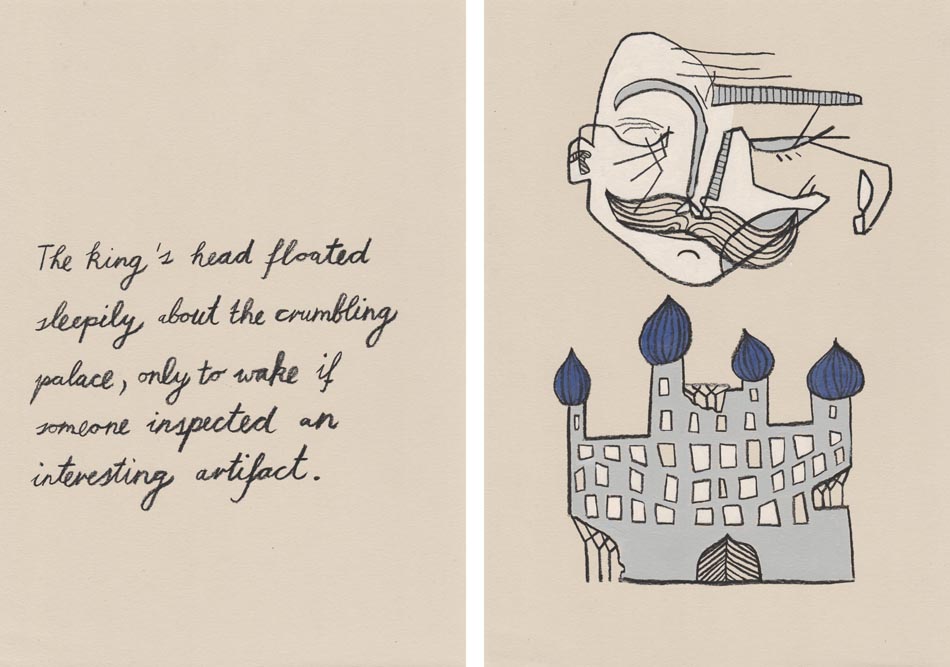 The king's head floated
sleepily about the crumbling
palace, only to wake if
someone inspected an
interesting artifact.